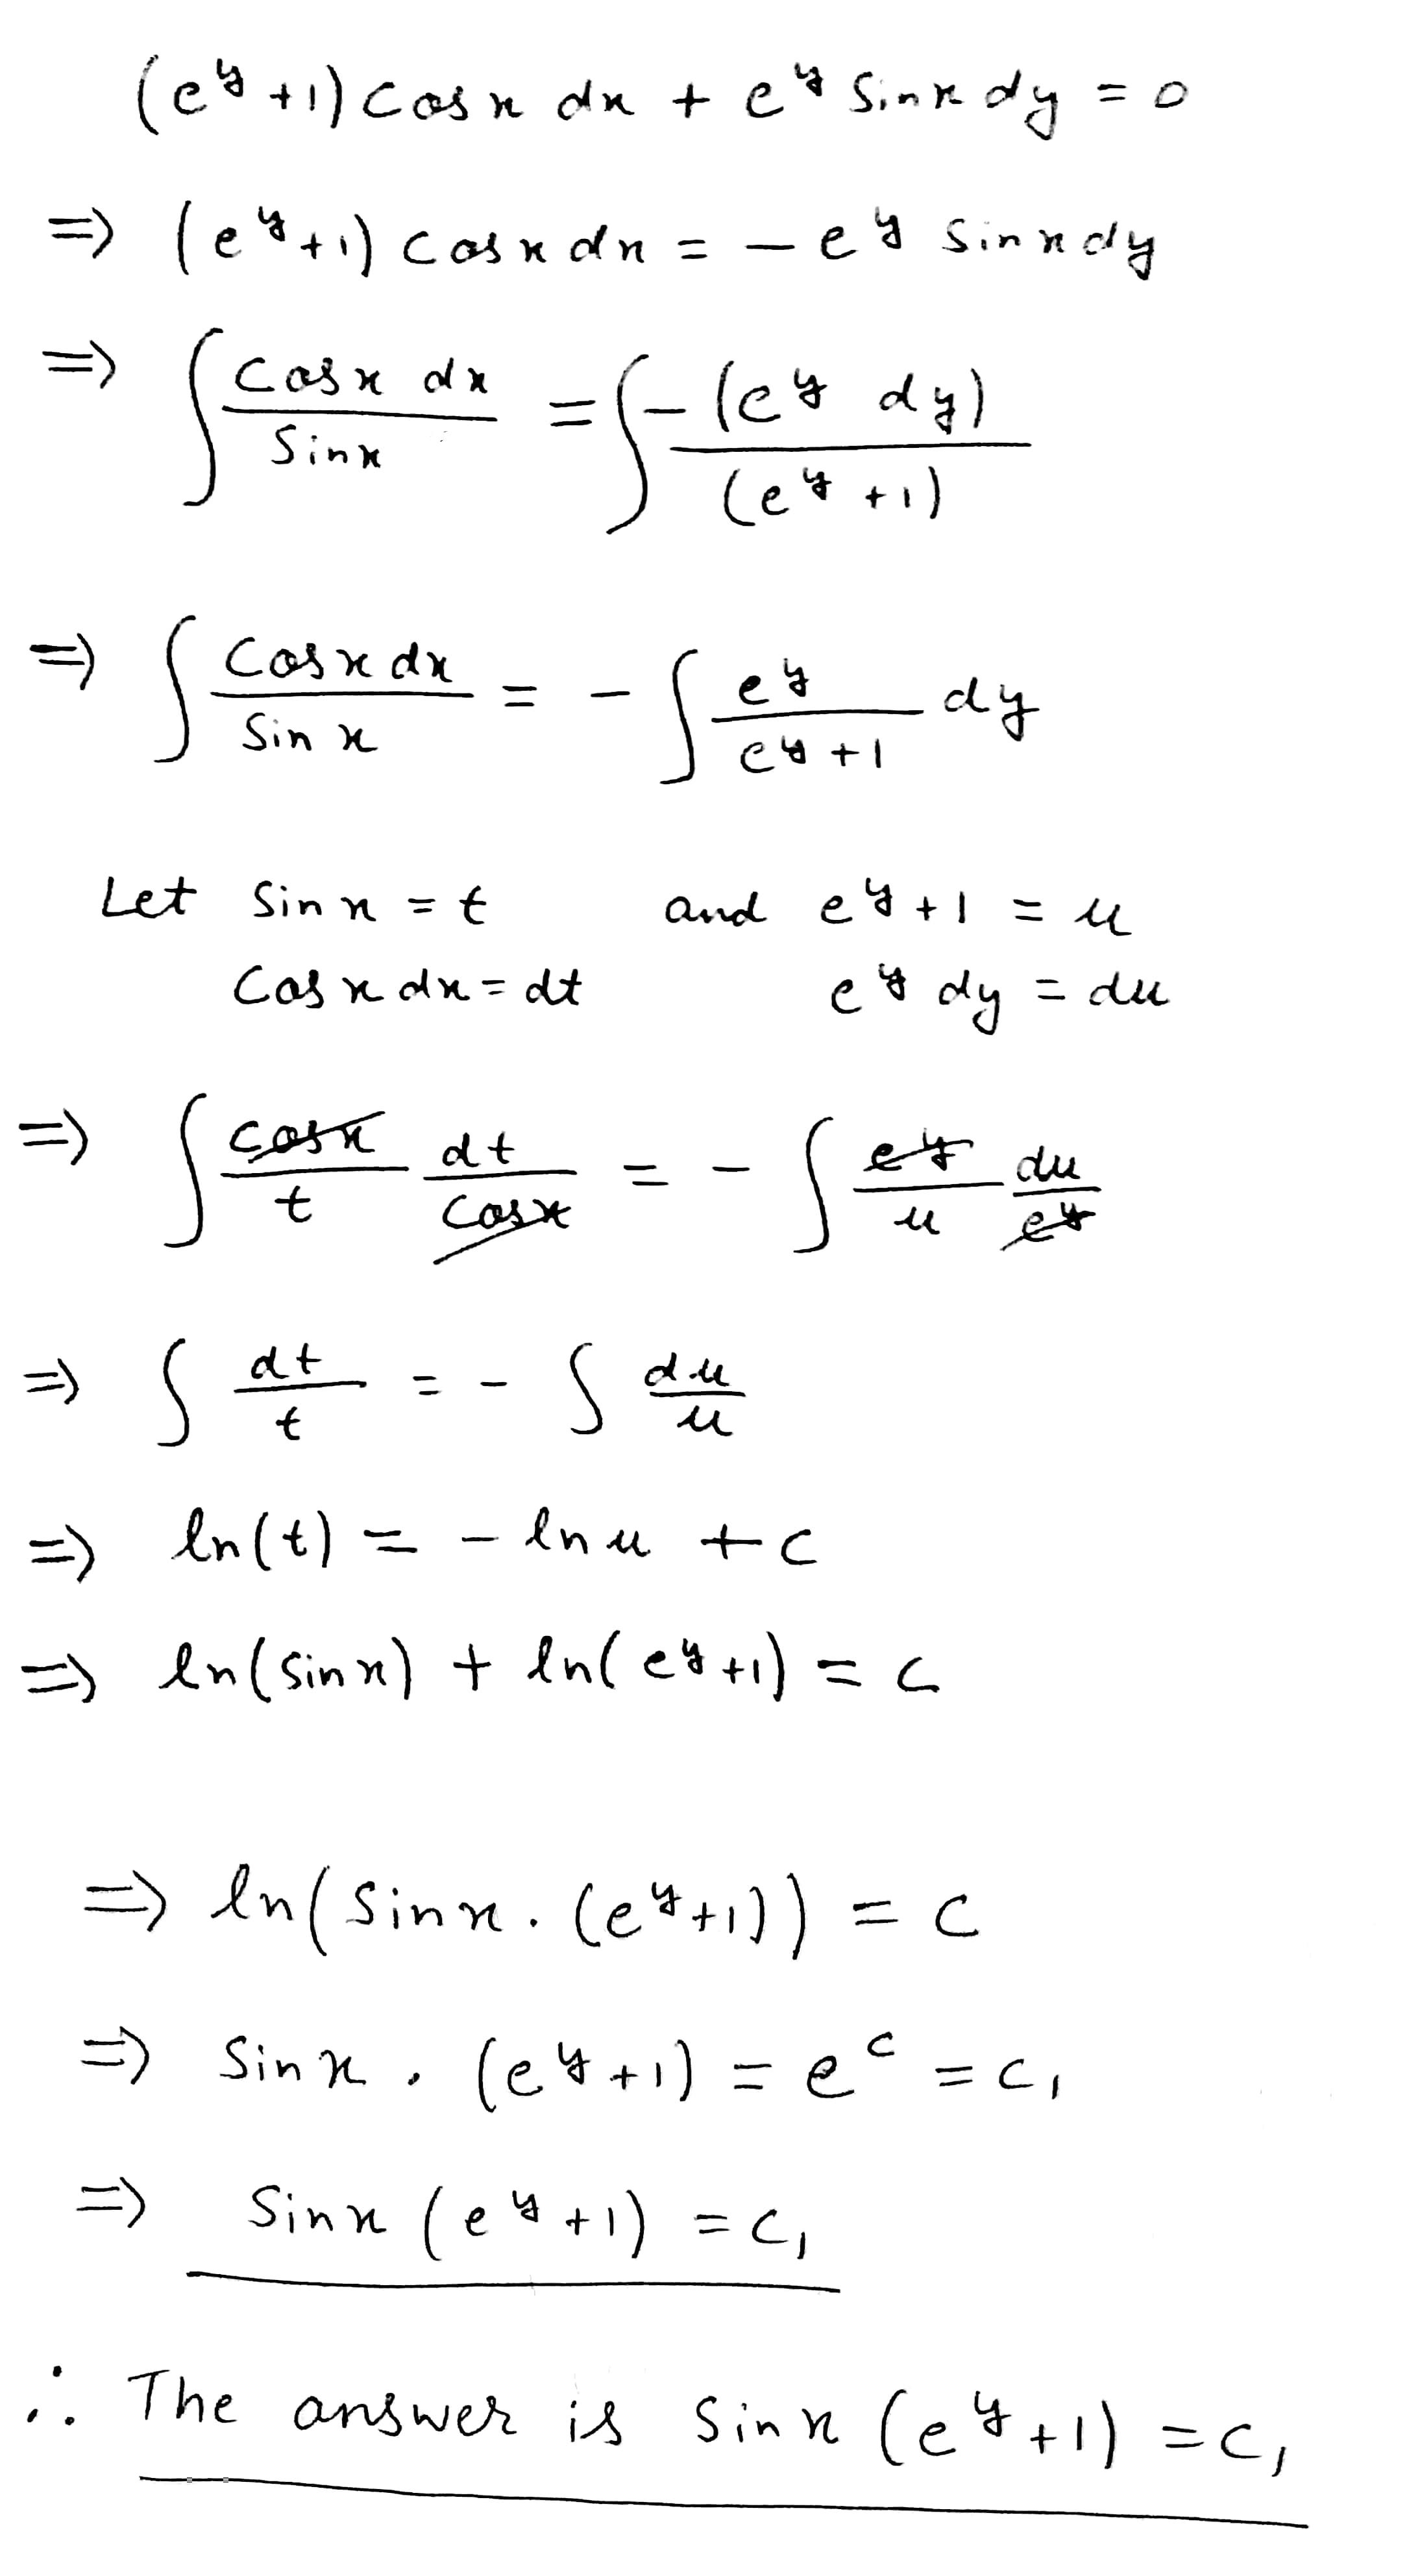 (e^y +1) cos x dx + e^y sin x dy = 0
=> (e^y +1) cos x dx = - e^y sin x dy
=> ∫ cos x dx / sin x = ∫ -(e^y dy) / (e^y +1)
=> ∫ cos x dx / sin x = - ∫ e^y / e^y +1 dy
Let sin x = t and e^y +1 = u
cos x dx = dt e^y dy = du
=> ∫ cos x / t dt / cos x = - ∫ e^y / u du / e^y
=> ∫ dt / t = - ∫ du / u
=> ln(t) = - ln u + c
=> ln(sin x) + ln(e^y +1) = c
=> ln(sin x . (e^y +1)) = c
=> sin x . (e^y +1) = e^c = c₁
=> sin x (e^y +1) = c₁
∴ The answer is sin x (e^y +1) = c₁